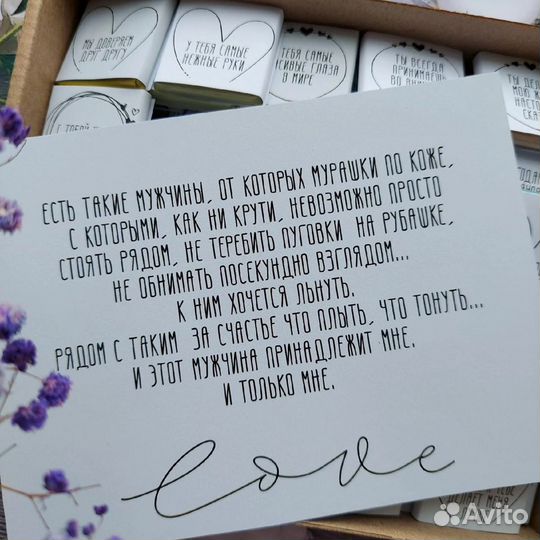 МЫ ДОВЕРЯЕМ
ДРУГ ДРУГУ
У ТЕБЯ САМЫЕ
НЕЖНЫЕ РУКИ
ТЕБЯ САМЫЕ
СИВЫЕ ГЛАЗА
В МИРЕ
ТЫ ВСЕГДА
ПРИНИМАЕШЬ
ТЫ ДЕЛ
МОЮ Ж
НАСТО
СКА
С ТОБОЙ
ЕСТЬ ТАКИЕ МУЖЧИНЫ, ОТ КОТОРЫХ МУРАШКИ ПО КОЖЕ,
С КОТОРЫМИ, КАК НИ КРУТИ, НЕВОЗМОЖНО ПРОСТО
СТОЯТЬ РЯДОМ, НЕ ТЕРЕБИТЬ ПУГОВКИ НА РУБАШКЕ,
НЕ ОБНИМАТЬ ПОСЕКУНДНО ВЗГЛЯДОМ...
К НИМ ХОЧЕТСЯ ЛЬНУТЬ.
РЯДОМ С ТАКИМ ЗА СЧАСТЬЕ ЧТО ПЛЫТЬ, ЧТО ТОНУТЬ...
И ЭТОТ МУЖЧИНА ПРИНАДЛЕЖИТ МНЕ.
И ТОЛЬКО МНЕ.
love
Avito